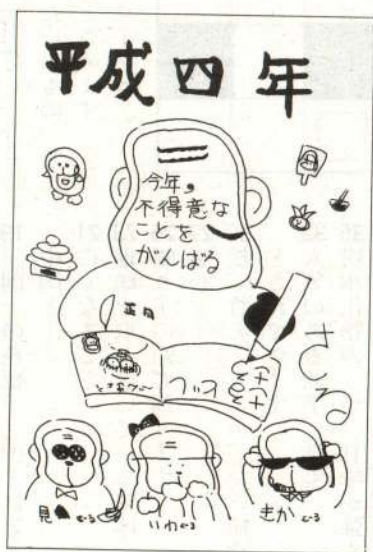 平成四年
今年、
不得意な
ことを
がんばる
正月
さる
見ざる
いわざる
きかざる